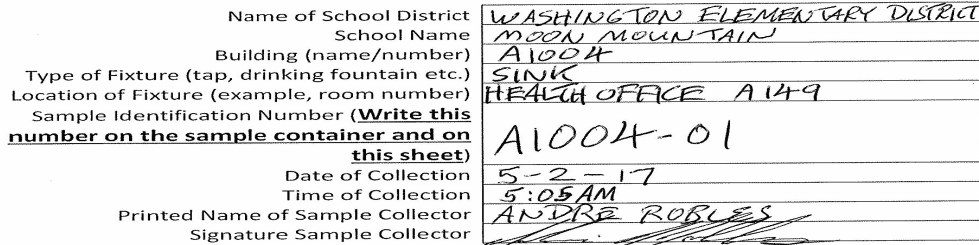 Name of School District WASHINGTON ELEMENTARY DISTRICT
School Name MOON MOUNTAIN
Building (name/number) A1004
Type of Fixture (tap, drinking fountain etc.) SINK
Location of Fixture (example, room number) HEALTH OFFICE A149
Sample Identification Number (Write this
number on the sample container and on
this sheet) A1004-01
Date of Collection 5-2-17
Time of Collection 5:05AM
Printed Name of Sample Collector ANDRE ROBLES
Signature Sample Collector